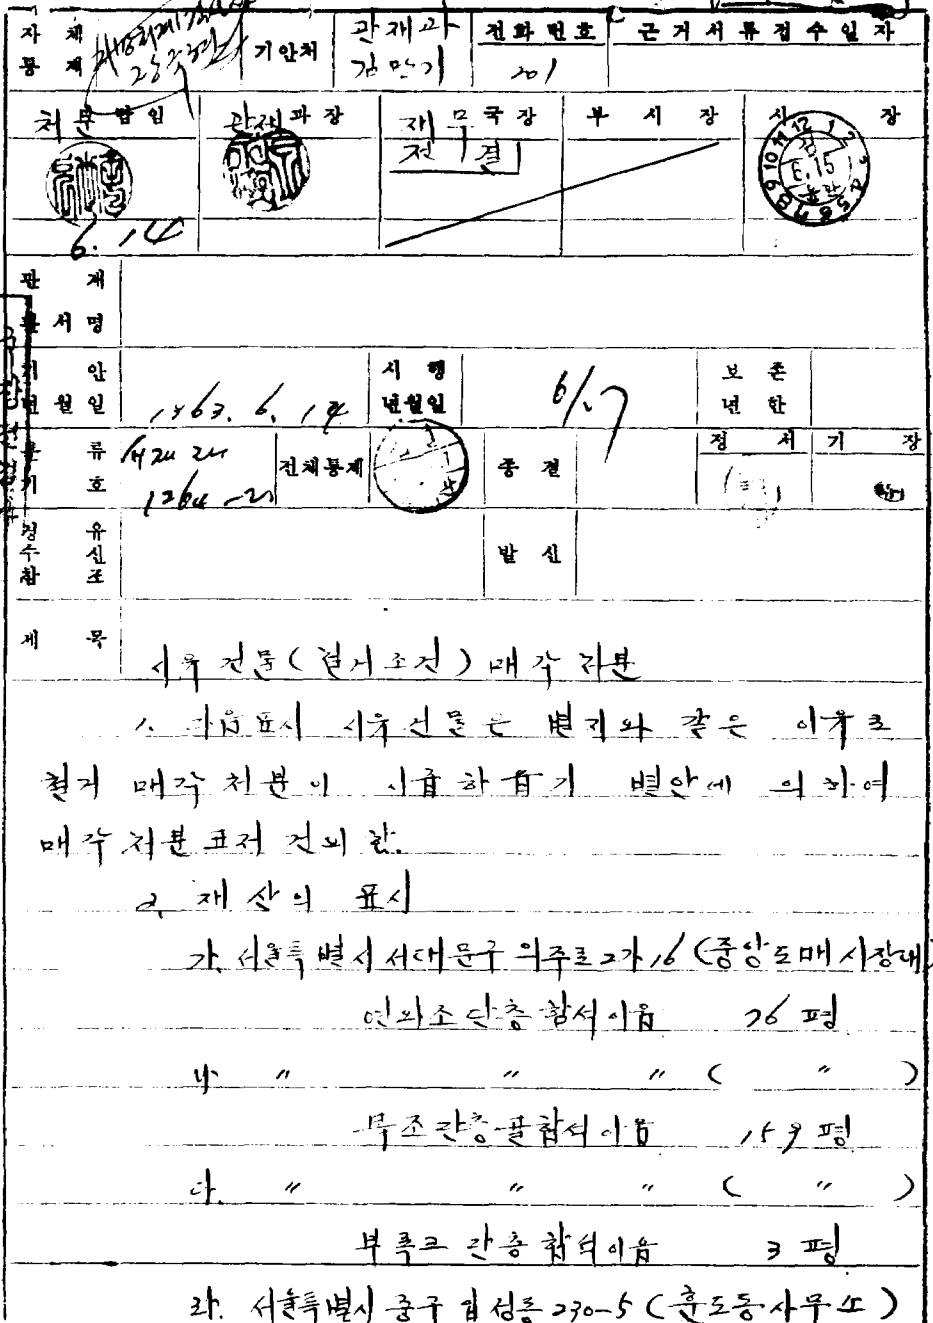 자 체 통 제 기안처 관재과 김만기 전화번호 201 근거서류접수일자
처분담임 관재과장 재무국장 부시장 시장
전결
6.15
6.14
관재
문서명
기안년월일 1963. 6. 14 시행년월일 6/17 보존년한
분류기호 1264-21 전체통제 종결 정서 기장
경유수신참조 발신
제목 시유건물(철거조건)매각처분
1. 다음표시 시유건물은 별지와 같은 이유로
철거 매각처분이 시급하옵기 별안에 의하여
매각처분코저 건의함.
2. 재산의 표시
가. 서울특별시 서대문구 의주로2가 16 (중앙도매시장내
연와조단층함석이음 76평
나. 〃 〃 〃 ( 〃 )
목조단층골함석이음 159평
다. 〃 〃 〃 ( 〃 )
부록크 단층함석이음 3평
라. 서울특별시 중구 입정동 230-5 (훈도동사무소)